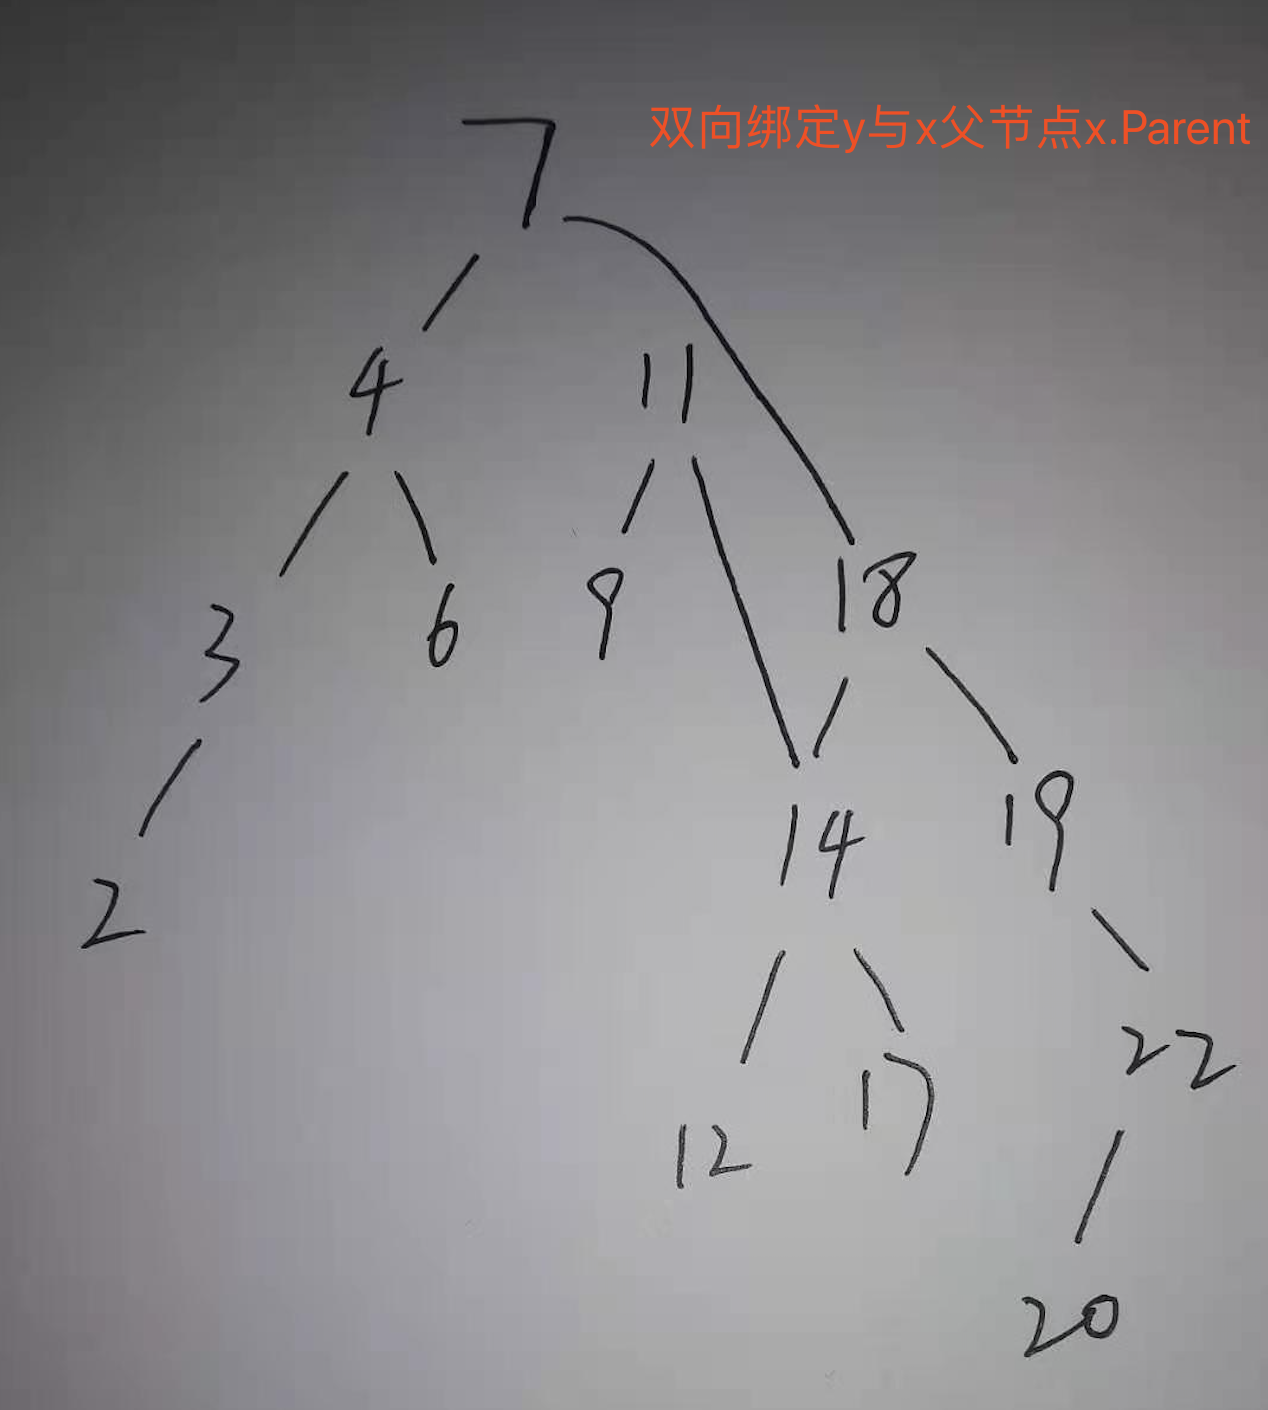 双向绑定y与x父节点x.Parent
7
4
11
3
6
9
18
2
14
19
12
17
22
20